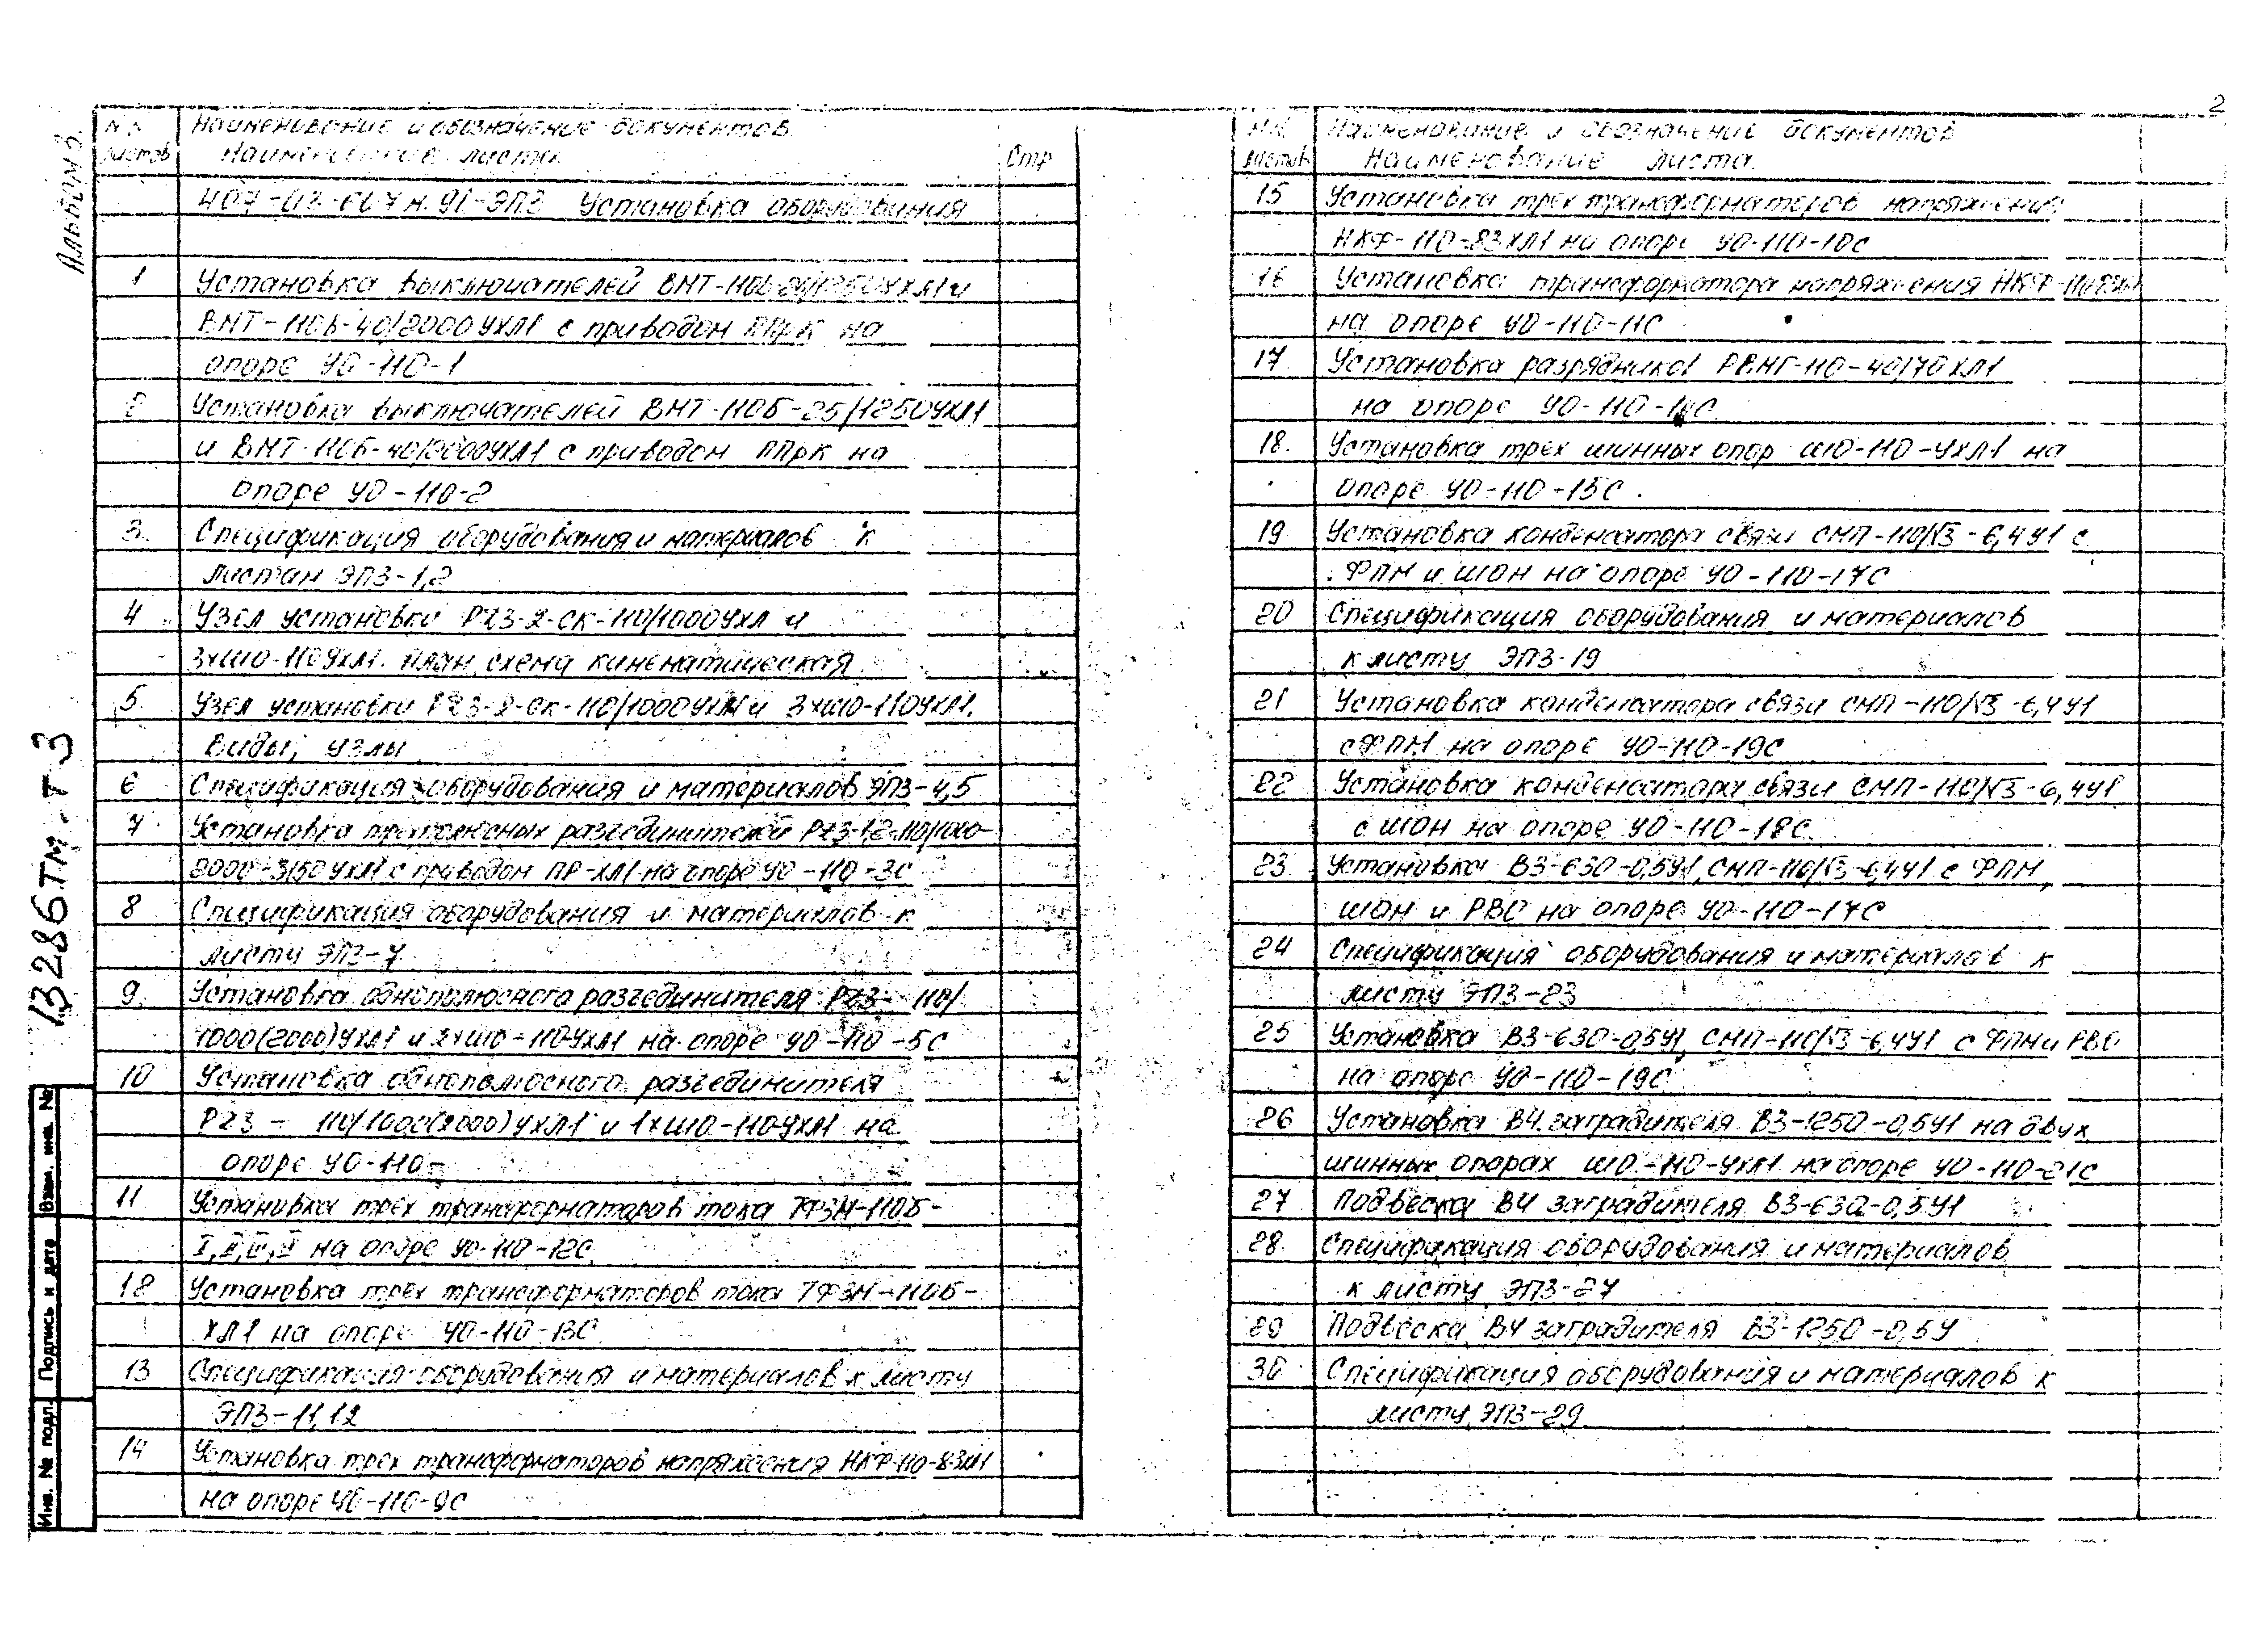 2
Альбом 3.
13286ТМ-Т3
Взам. инв. №
Подпись и дата
Инв. № подл.
№№ листов
Наименование и обозначение документов.
Наименование листа
Стр
407-03-607м.91-ЭП3 Установка оборудования
1 Установка выключателей ВМТ-110Б-25/1250УХЛ1 и
ВМТ-110Б-40/2000УХЛ1 с приводом ППрК на
опоре УО-110-1
2 Установка выключателей ВМТ-110Б-25/1250УХЛ1
и ВМТ-110Б-40/2000УХЛ1 с приводом ППрК на
опоре УО-110-2
3. Спецификация оборудования и материалов к
листам ЭП3-1,2
4 Узел установки РДЗ-2-СК-110/1000УХЛ и
3хШО-110УХЛ1. План, схема кинематическая
5. Узел установки РДЗ-2-СК-110/1000УХЛ1 и 3хШО-110УХЛ1.
Виды, узлы
6 Спецификация оборудования и материалов ЭП3-4,5
7 Установка трехполюсных разъединителей РДЗ-1,2-110/1000-
2000-3150УХЛ1 с приводом ПР-ХЛ1 на опоре УО-110-3С
8 Спецификация оборудования и материалов к
листу ЭП3-7
9 Установка однополюсного разъединителя РДЗ- 110/
1000(2000)УХЛ1 и 2хШО-110-УХЛ1 на опоре УО-110-5С
10 Установка однополюсного разъединителя
РДЗ- 110/1000(2000)УХЛ1 и 1хШО-110-УХЛ1 на
опоре УО-110-
11 Установка трех трансформаторов тока ТФЗМ-110Б-
на опоре УО-110-12С
12 Установка трех трансформаторов тока ТФЗМ-110Б-
ХЛ1 на опоре УО-110-13С
13 Спецификация оборудования и материалов к листу
ЭП3-11,12
14 Установка трех трансформаторов напряжения НКФ-110-83ХЛ1
на опоре УО-110-9С
№№ листов
Наименование и обозначение документов
Наименование листа.
15 Установка трех трансформаторов напряжения
НКФ-110-83ХЛ1 на опоре УО-110-10С
16 Установка трансформатора напряжения НКФ-110-83ХЛ1
на опоре УО-110-11С
17 Установка разрядника РВМГ-110-40/70ХЛ1
на опоре
18. Установка трех шинных опор ШО-110-УХЛ1 на
опоре УО-110-15С.
19 Установка конденсатора связи СМП-110/√3-6,4У1 с
ФПМ и ШОН на опоре УО-110-17С
20 Спецификация оборудования и материалов
к листу ЭП3-19
21 Установка конденсатора связи СМП-110/√3-6,4У1
с ФПМ на опоре УО-110-19С
22 Установка конденсатора связи СМП-110/√3-6,4У1
с ШОН на опоре УО-110-18С.
23 Установка ВЗ-630-0,5У1, СМП-110/√3-6,4У1 с ФПМ,
ШОН и РВО на опоре УО-110-17С
24 Спецификация оборудования и материалов к
листу ЭП3-23
25 Установка ВЗ-630-0,5У1, СМП-110/√3-6,4У1 с ФПМ и РВО
на опоре УО-110-19С
26 Установка ВЧ заградителя ВЗ-1250-0,5У1 на двух
шинных опорах ШО-110-УХЛ1 на опоре УО-110-21С
27 Подвеска ВЧ заградителя ВЗ-630-0,5У1
28. Спецификация оборудования и материалов
к листу ЭП3-27
29 Подвеска ВЧ заградителя ВЗ-1250-0,5У
30 Спецификация оборудования и материалов к
листу ЭП3-29